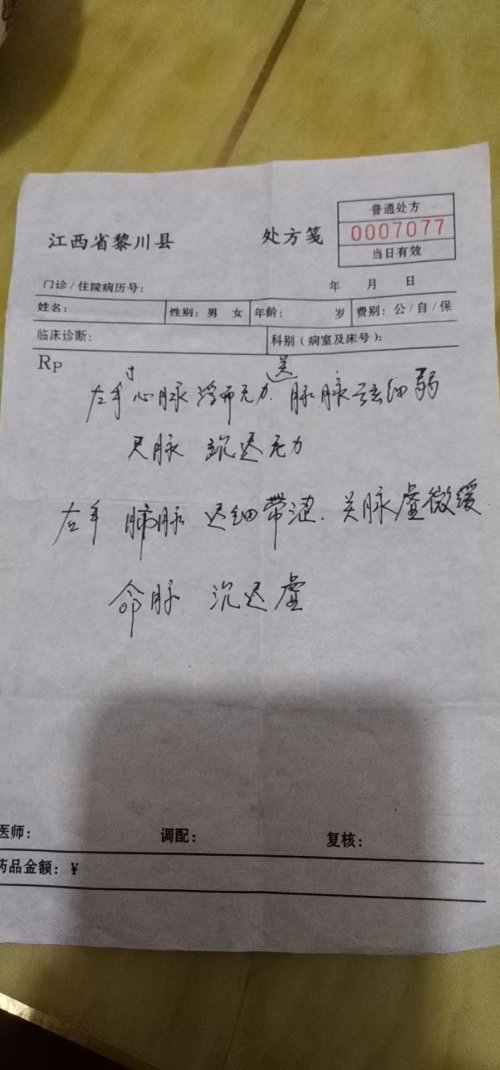 普通处方
江西省黎川县 处方笺 0007077
当日有效
门诊/住院病历号： 年 月 日
姓名： 性别：男 女 年龄： 岁 费别：公/自/保
临床诊断： 科别（病室及床号）：
Rp
寸
左手心脉浮而无力. 脉弦细弱
尺脉 沉迟无力
左手 肺脉 迟细带涩. 关脉虚微缓
命脉 沉迟虚
医师： 调配： 复核：
药品金额：¥